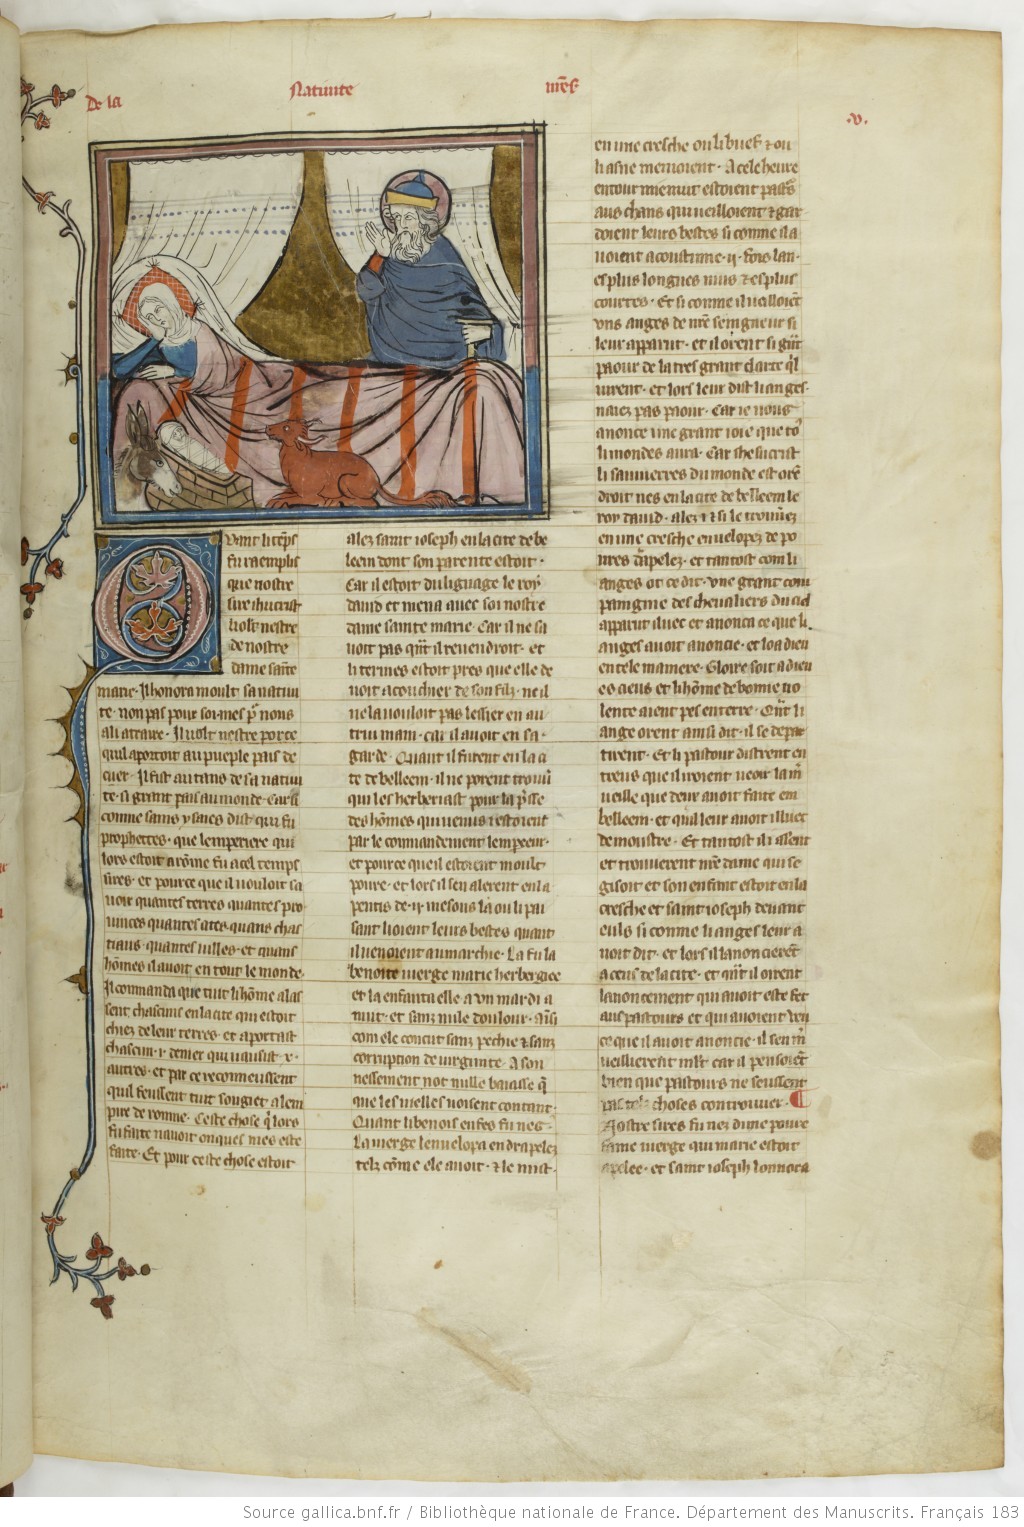 De la Natiuite nr̃es
.v.
Quant li tẽps
fu raemplis
que nostre
sire ihũcrist
uolt nestre
de nostre
dame sainte
marie. Il honora moult sa natiui
te. non pas pour soi. mes pͬ nous
a li atraire. Il uolt nestre por ce
quil aportoit au pueple pais de
cuer. Il fist au tans de sa natiui
te. si grant pais au monde. Car si
comme sains ysaies dist qui fu
prophettes. que lemperiere qui
lors estoit a rõme fu a cel temps
sires. et pour ce que il uouloit sa
uoir quantes terres quantes pro
uinces quantes cites quans chas
tiaus. quantes uilles. et quans
hõmes il auoit en tout le monde.
Il commanda que tuit li hõme alas
sent chascuns en la cite qui estoit
chiez de leur terres. et aportast
chascun .i. denier qui uausist .x.
autres. et par ce reconneussent
quil feussent tuit sougiet a lem
pire de romme. Ceste chose q̃ lors
fu faite nauoit onques mes este
faite. Et pour ceste chose estoit
alez saint ioseph en la cite de be
leem dont son parente estoit.
Car il estoit du lignage le roy
dauid et mena auec soi nostre
dame sainte marie. Car il ne sa
uoit pas quãt il reuendroit. et
li termes estoit pres que elle de
uoit acouchier de son filz. ne il
ne la uouloit pas lessier en au
trui main. car il auoit en sa
garde. Quant il furent en la ci
te de belleem. il ne porent trouũ
qui les herberiast pour la p̃sse
des hõmes qui uenus i estoient
par le commandement lempeeur.
et pour ce que il estoient moult
poure. et lors il sen alerent en la
pentis de .ii. mesons la ou li pai
sant lioient leurs bestes quant
il uenoient au marchie. La fu la
benoite uierge marie herbergiee
et la enfanta elle a un mardi a
nuit. et sanz nule doulour. ausi
com ele conciut sanz pechie et sanz
corruption de uirginite. A son
nessement not nulle baiasse q̃
que les uielles uoisent contant.
Quant li benois enfes fu nes.
La uierge lenuelopa en drapelez
telz cõme ele auoit. et le mist
en une cresche ou li buef et ou
li asne menioient. A cele heure
en tour mienuit estoient past̃s
aus chans qui ueilloient et gar
doient leurs bestes si comme il a
uoient acoustume .ii. fois lan.
es plus longues nuis et es plus
courtes. Et si comme il ueilloiẽt
uns anges de nr̃e seingneur si
leur apparut. et il orent si grãt
paour de la tres grant clarte q̃l
uirent. et lors leur dist li anges.
naiez pas paour. Car ie uous
anonce une grant ioie que toz
li mondes aura. Car ihesucrist
li sauuierres du monde est orẽ
droit nes en la cite de belleem le
roy dauid. alez i et si le trouuez
en une cresche enuelopez de po
ures drapelez. et tantost com li
anges ot ce dit. une grant com
paingnie des cheualiers du ciel
apparut iluec et anonca ce que li
anges auoit anoncie. et loa dieu
en tele maniere. Gloire soit a dieu
es cieus et li hõme de bonne uo
lente aient pes en terre. Quãt li
ange orent ainsi dit. il se depar
tirent. Et li pastour distrent en
treus que il iroient ueoir la mͬ
ueille que dieur auoit faite em
belleem. et qui leur auoit illuec
demoustre. Et tantost il alerent
et trouuerent nr̃e dame qui se
gisoit et son enfant estoit en la
cresche et saint ioseph deuant
euls si comme li anges leur a
uoit dit. et lors il lanoncierẽt
a ceus de la cite. et quãt il oirent
lanoncement qui auoit este fet
aus pastours et qui auoient ueu
ce que il auoit anoncie. il sen mͬ
ueillierent ml̃t car il pensoiẽt
bien que pastours ne seussent
pas telz choses controuuer.
Nostre sires fu nez dune poure
fame uierge qui marie estoit
apelee. et saint ioseph lonnora
Source gallica.bnf.fr / Bibliothèque nationale de France. Département des Manuscrits. Français 183